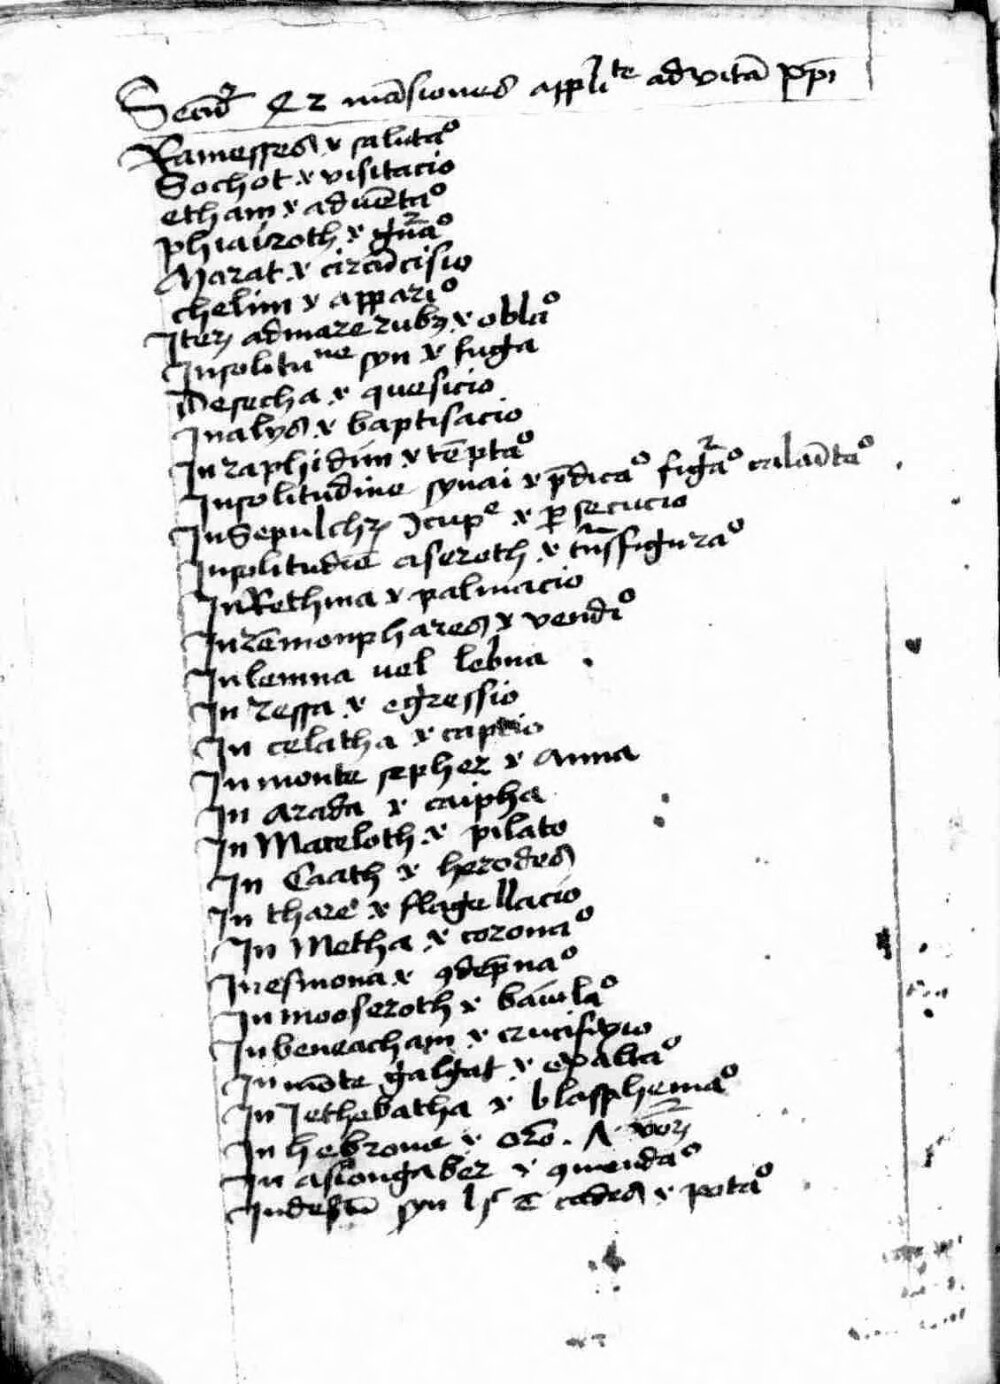 Secūtur 42 māsiones appli^te ad vitā xpī
Ramesses x salutaº
Sochot x visitacio
etham x advētaº
phiairoth x gn̄aº
Marat x circūcisio
chelim x appariº
Iter ad mare rubrum x oblaº
In solitune syn x fuga
Desecha x quesicio
In alys x baptisacio
In raphidim x tēptaº
In solitudine synai x p̄dicaº figr̄aº
In Sepulchr ɔcupe x persecucio
In solitudīe aseroth x tn̄sfiguraº
In Rethma x palmacio
In rēmonphares x vendiº
In lemna vel lebna
In ressa x egressio
In celatha x captio
In monte sepher x Anna
In Arada x caipha
In Maceloth x pilato
In Caath x herodes
In thare x flagellacio
In Metha x coronaº
In esmona x ꝯdēpnaº
In mooseroth x baiulaº
In beneacham x crucifixio
In mōte galgat x exaltaº
In Iethebatha x blasphemaº
In hebrona x orō.
In asiongaber x ꝯmendaº
In deſtū syn cades x potaº